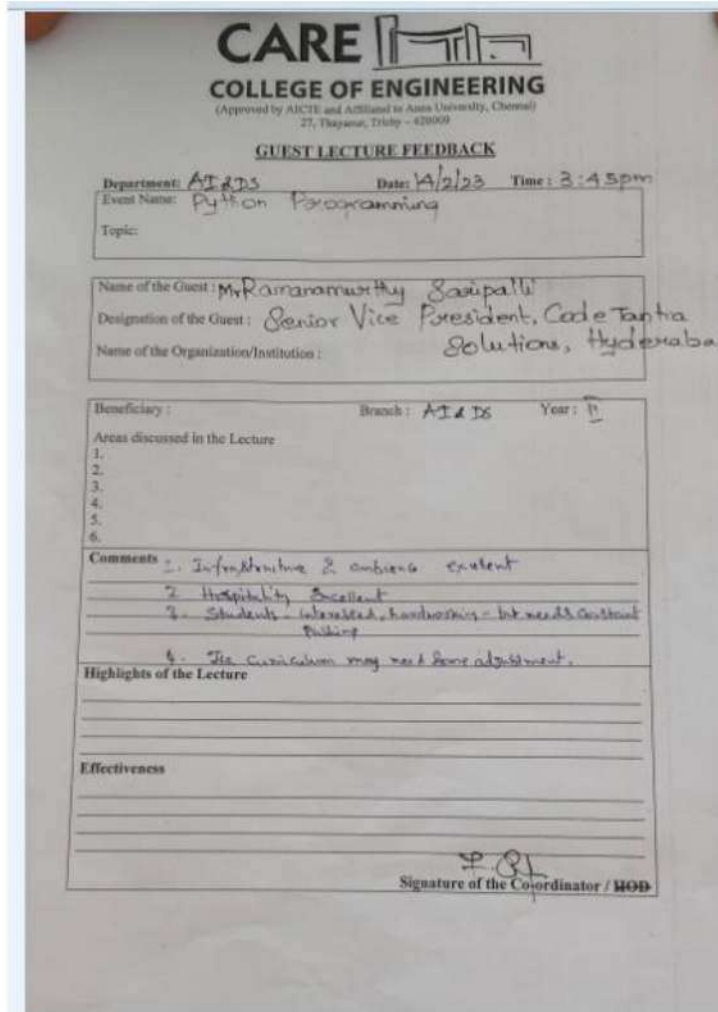 CARE
COLLEGE OF ENGINEERING
(Approved by AICTE and Affiliated to Anna University, Chennai)
27, Thayanur, Trichy - 620009
GUEST LECTURE FEEDBACK
Department: AI & DS Date: 14/2/23 Time: 3:45pm
Event Name: Python Programming
Topic:
Name of the Guest: Mr Ramanamurthy Saripalli
Designation of the Guest: Senior Vice President, Code Tantra
Solutions, Hyderaba
Name of the Organization/Institution:
Beneficiary: Branch: AI & DS Year: II
Areas discussed in the Lecture
1.
2.
3.
4.
5.
6.
Comments 1. Infrastructure & ambience
2. Hospitality Excellent
3. Students - interested, hardworking - but needs constant
Pushing
4. The curriculum may need some adjustment.
Highlights of the Lecture
Effectiveness
Signature of the Co-ordinator / HOD